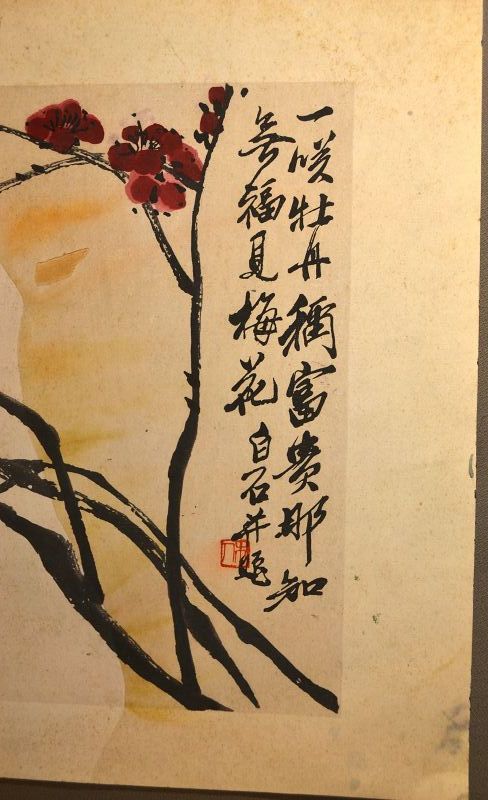 一笑牡丹稱富貴那知
無福見梅花白石并題